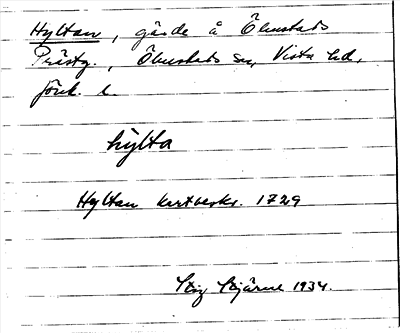 Hyltan, gärde å Ölmstads
Prästg., Ölmstads sn, Vista hd,
Jönk. l.
hỳlta
Hyltan kartbeskr. 1729
Stig Stjärne 1934.